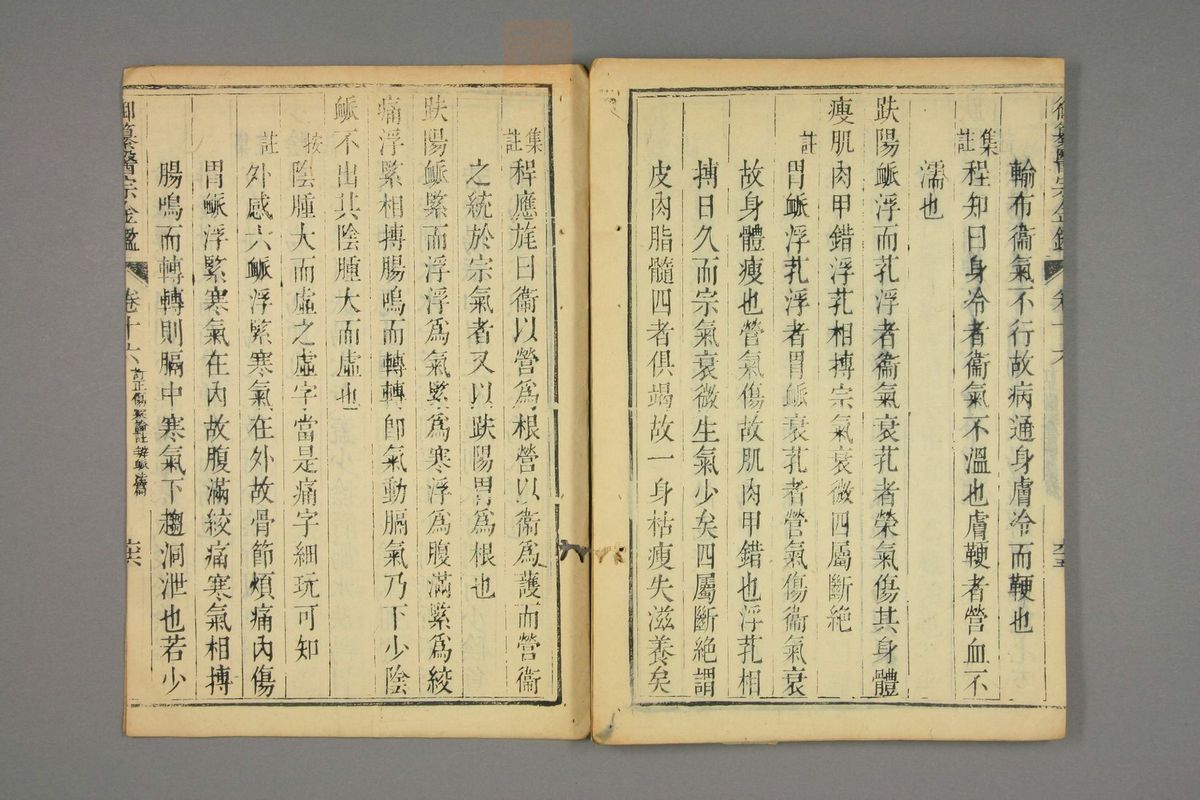 御纂醫宗金鑑 卷十六
輸布衞氣不行故病通身膚冷而鞕也
集註 程知曰身冷者衞氣不溫也膚鞕者營血不
濡也
趺陽脈浮而芤浮者衞氣衰芤者榮氣傷其身體
瘦肌肉甲錯浮芤相搏宗氣衰微四屬斷絶
註 胃脈浮芤浮者胃脈衰芤者營氣傷衞氣衰
故身體瘦也營氣傷故肌肉甲錯也浮芤相
摶日久而宗氣衰微生氣少矣四屬斷絶謂
皮肉脂髓四者俱竭故一身枯瘦失滋養矣
集註 程應旄曰衞以營爲根營以衞爲護而營衞
之統於宗氣者又以趺陽胃爲根也
趺陽脈緊而浮浮爲氣緊爲寒浮爲腹滿緊爲絞
痛浮緊相搏腸鳴而轉轉卽氣動膈氣乃下少陰
脈不出其陰腫大而虛也
按 陰腫大而虛之虛字當是痛字細玩可知
註 外感六脈浮緊寒氣在外故骨節煩痛內傷
胃脈浮緊寒氣在內故腹滿絞痛寒氣相摶
腸鳴而轉轉則膈中寒氣下趨洞泄也若少
御纂醫宗金鑑 卷十六 訂正傷寒論註辨脈法篇